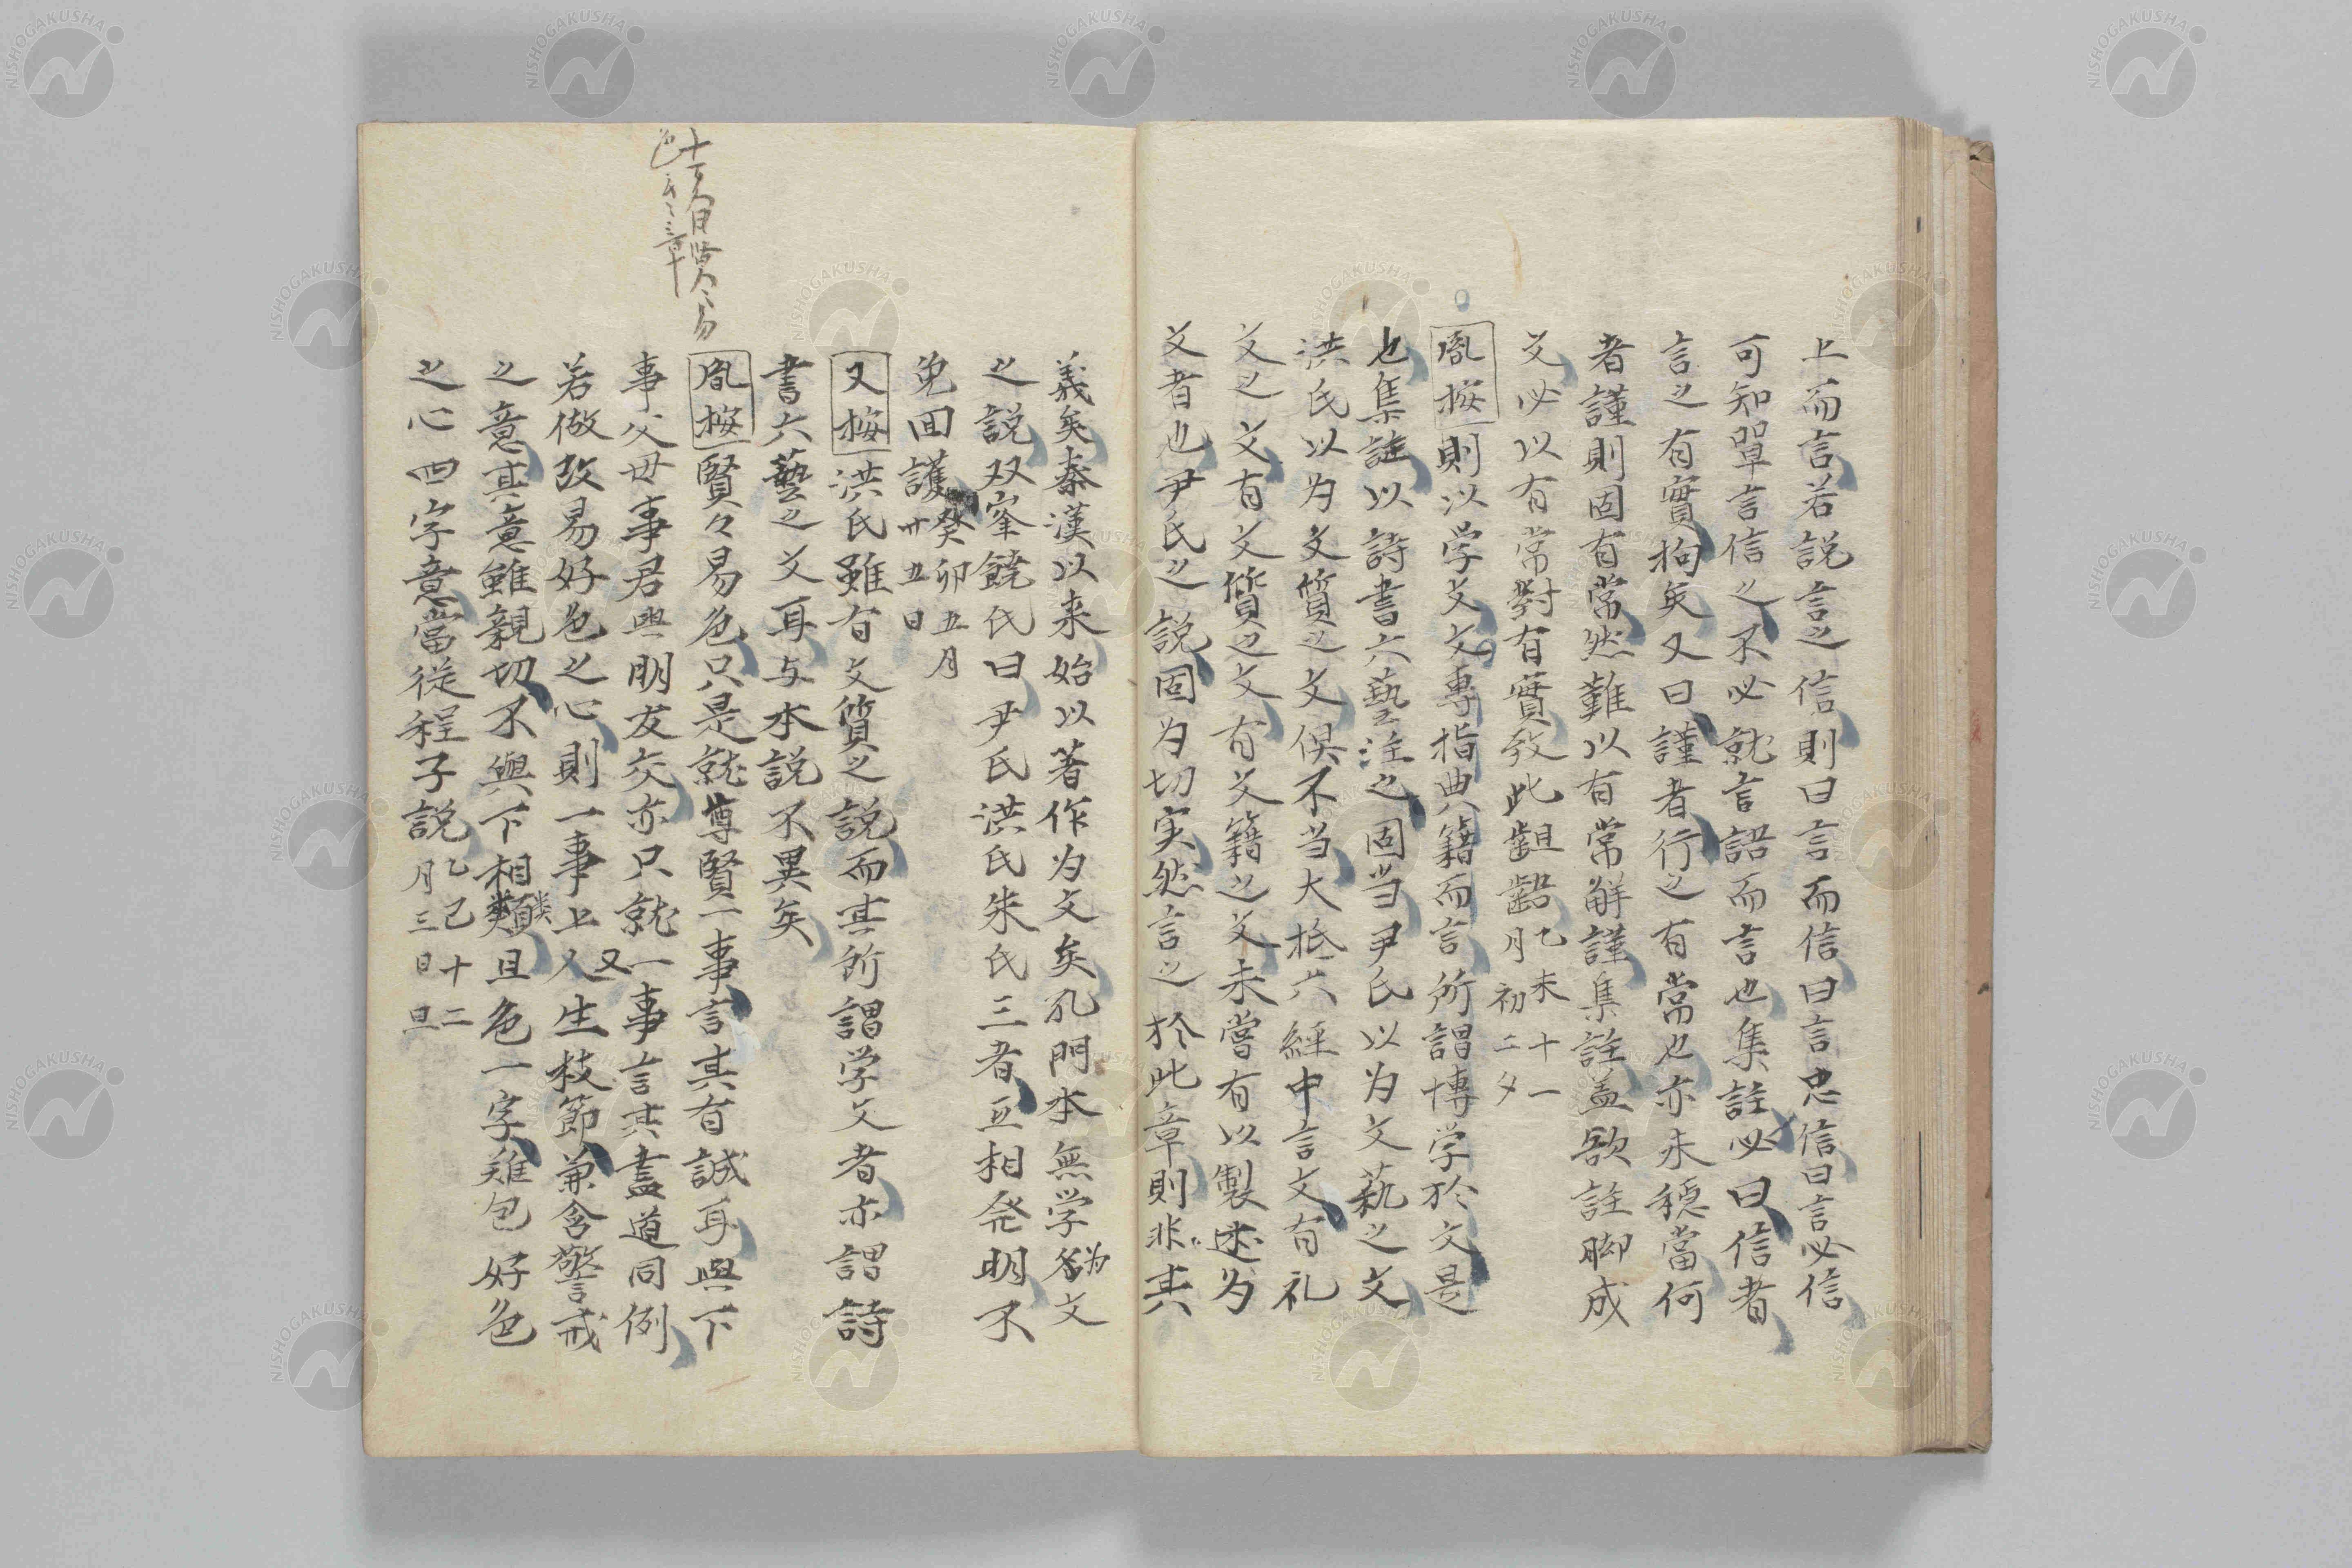 上而言若説言之信則曰言而信曰言忠信曰言必信
可知單言信之不必就言語而言也集註必曰信者
言之有實拘矣又曰謹者行之有常也亦未穏當何
者謹則固有常然難以有常解謹集註盖欲註脚成
文必以有常對有實致此齟齬乙未十一
月初二夕
胤按則以学文文專指典籍而言所謂博学於文是
也集註以詩書六藝注之固当尹氏以为文藝之文
洪氏以为文質之文倶不当大抵六經中言文有礼
文之文有文質之文有文籍之文未嘗有以製述为
文者也尹氏之説固为切実然言之於此章則非其
義矣秦漢以来始以著作为文矣孔門本無学为文
之説双峯饒氏曰尹氏洪氏朱氏三者互相発明不
免回護癸卯五月
廿五日
又按洪氏雖有文質之説而其所謂学文者亦謂詩
書六藝之文耳与本説不異矣
十古
賢賢易
色
章
胤按賢々易色只是就尊賢一事言其有誠耳與下
事父母事君與朋友交亦只就一事言其盡道同例
若做改易好色之心則一事上又人生枝節兼含警戒
之意其意雖親切不與下相類且色一字難包好色
之心四字意當從程子説乙己十二
月三日旦
NISHOGAKUSHA